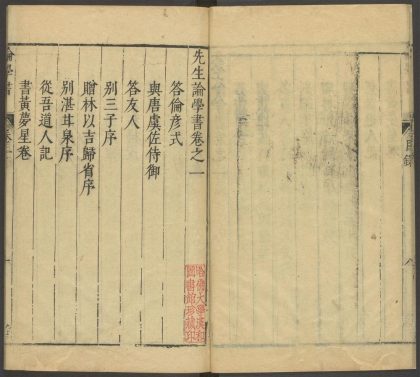 先生論學書卷之一
答倫彥式
與唐虞佐侍御
答友人
別三子序
贈林以吉歸省序
別湛甘泉序
從吾道人記
書黃夢星卷
哈佛大學漢和
圖書館珍藏印